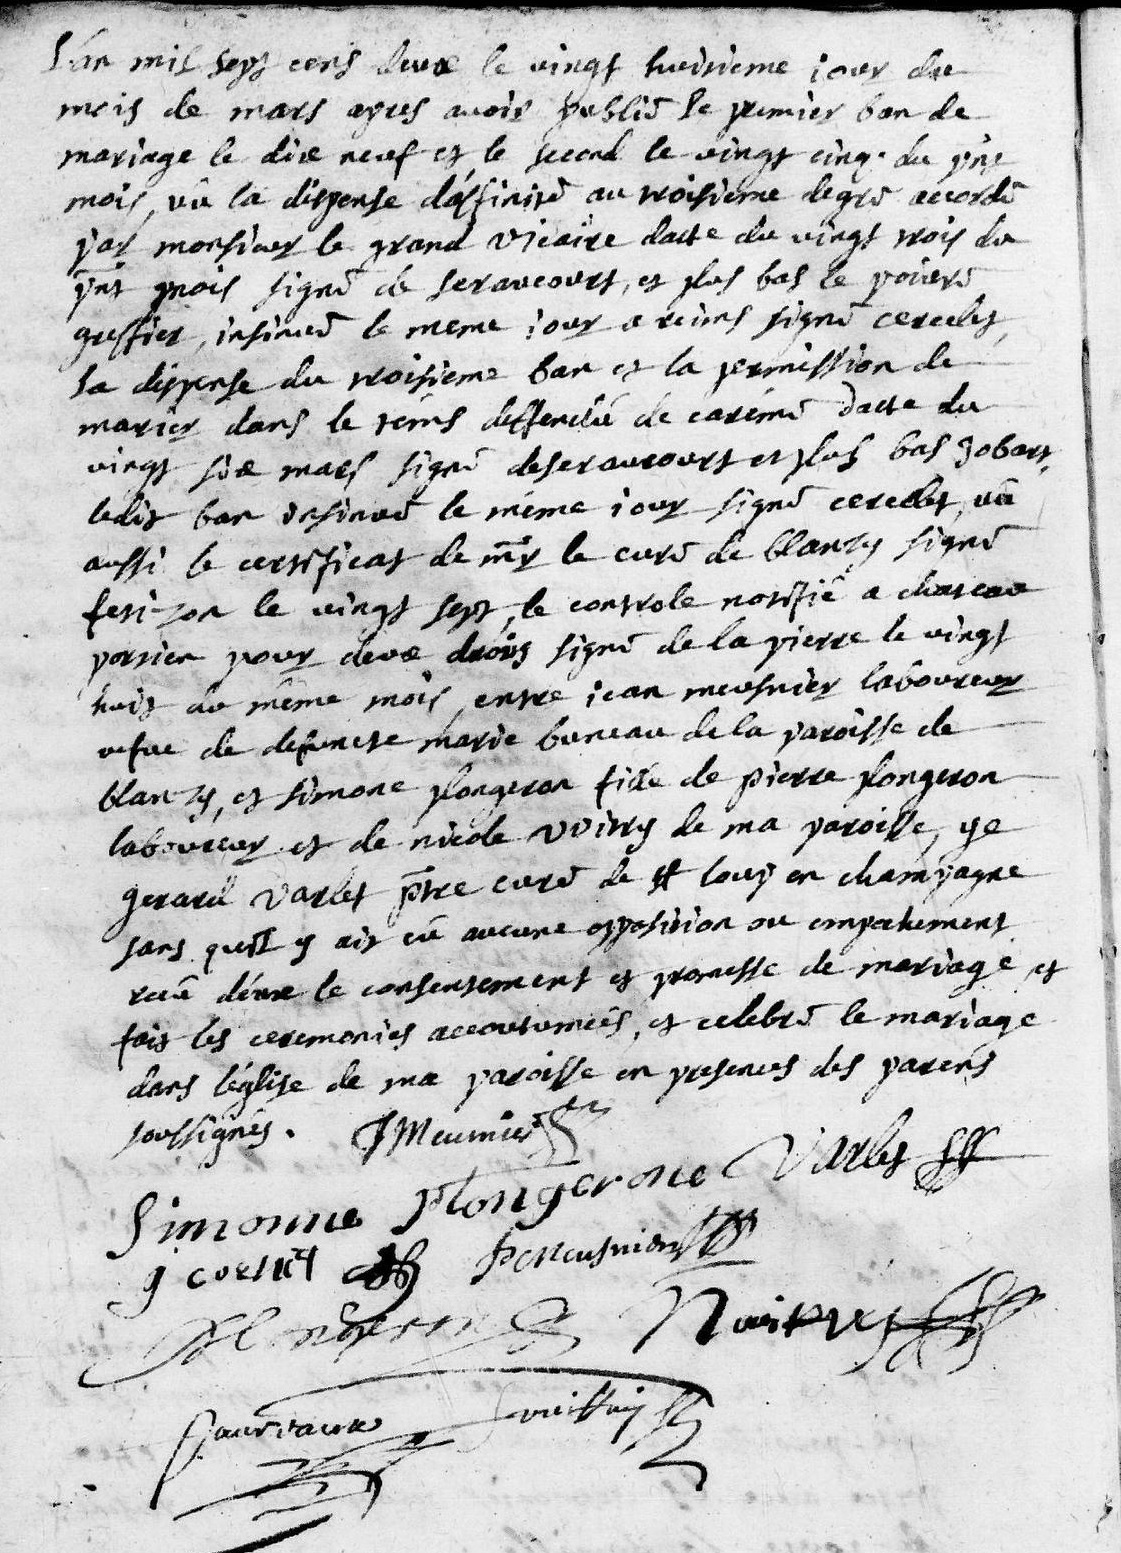 L'an mil sept cens deux le vingt huitieme iour du
mois de mars apres avoir publié le premier ban de
mariage le dixe neuf et le second le vingt cinq. du pñt
mois, vû la dispense d'affinité au troisieme degré accordé
par monsieur le grand vicaire datte du vingt trois du
pñt mois signé de seraucourt, et plus bas le poivre
greffier, insinué le meme iour a reims signé cerclet,
la dispense du troisieme ban et la permission de
marier dans le tems deffendû de caréme datte du
vingt six mars signé deseraucourt et plus bas Jobart,
ledit ban insinué le méme iour signé cerclet, vû
aussi le certificat de mr le curé de blanzy signé
fetizon le vingt sept, le controle notifié a chateau
porsien pour deux droits signé de la pierre le vingt
huit du même mois, entre iean meusnier laboureur
vefue de defuncte marie buneau de la paroisse de
blanzy, et simone plongeron fille de pierre plongeron
laboureur et de nicole vvitry de ma paroisse, ye
gerard varlet p̃tre curé de st loup en champagne
sans qu'il y ait eû aucune opposition ou empechement
receû d'eux le consentement et promesse de mariage et
fait les ceremonies accoutumées, et celebré le mariage
dans l'église de ma paroisse en presences des parens
soussignés. J Meunier
Simonne plongerone Varlet
g cornet p meusnier
plongeron N vuitry
vuittry